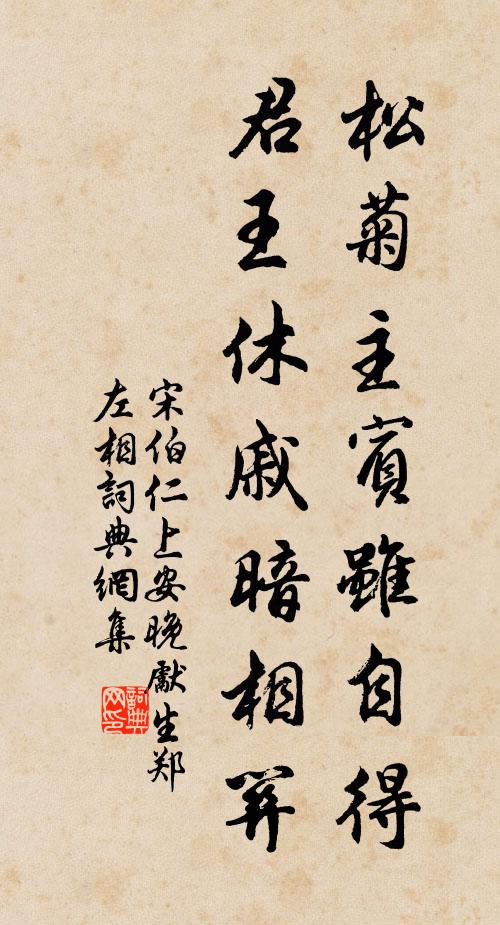 松菊主賓雖自得
君王休戚暗相關
宋伯仁上安晚獻生郑
左相詞典網集
詞典
网印